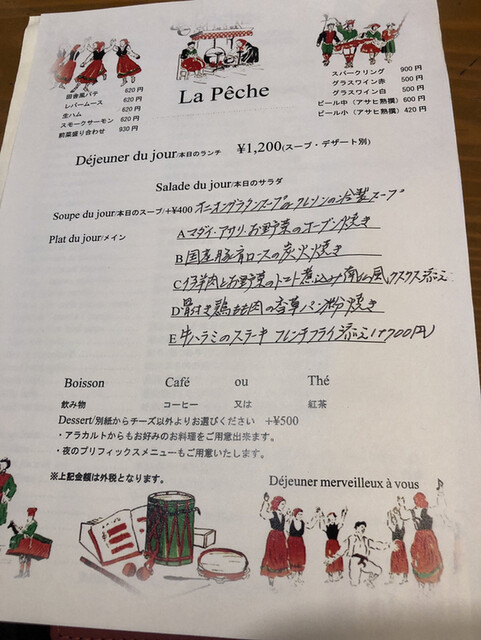 La Pêche
田舎風パテ 620円
レバームース 620円
生ハム 620円
スモークサーモン 620円
前菜盛り合わせ 930円
スパークリング 900円
グラスワイン赤 500円
グラスワイン白 500円
ビール中（アサヒ熟撰）600円
ビール小（アサヒ熟撰）420円
Déjeuner du jour/本日のランチ ¥1,200(スープ・デザート別)
Salade du jour/本日のサラダ
Soupe du jour/本日のスープ/+¥400 オニオングラタンスープor クレソンの冷製スープ
Plat du jour/メイン
A マダイ・アサリ・お野菜のオーブン焼き
B 国産豚肩ロースの炭火焼き
C 仔羊肉とお野菜のトマト煮込み 南仏風 クスクス添え
D 骨付き鶏もも肉の香草パン粉焼き
E 牛ハラミのステーキ フレンチフライ添え(+700円)
Boisson Café ou Thé
飲み物 コーヒー 又は 紅茶
Dessert/別紙からチーズ以外よりお選びください +¥500
・アラカルトからもお好みのお料理をご用意出来ます。
・夜のプリフィックスメニューもご用意いたします。
※上記金額は外税となります。
Déjeuner merveilleux à vous